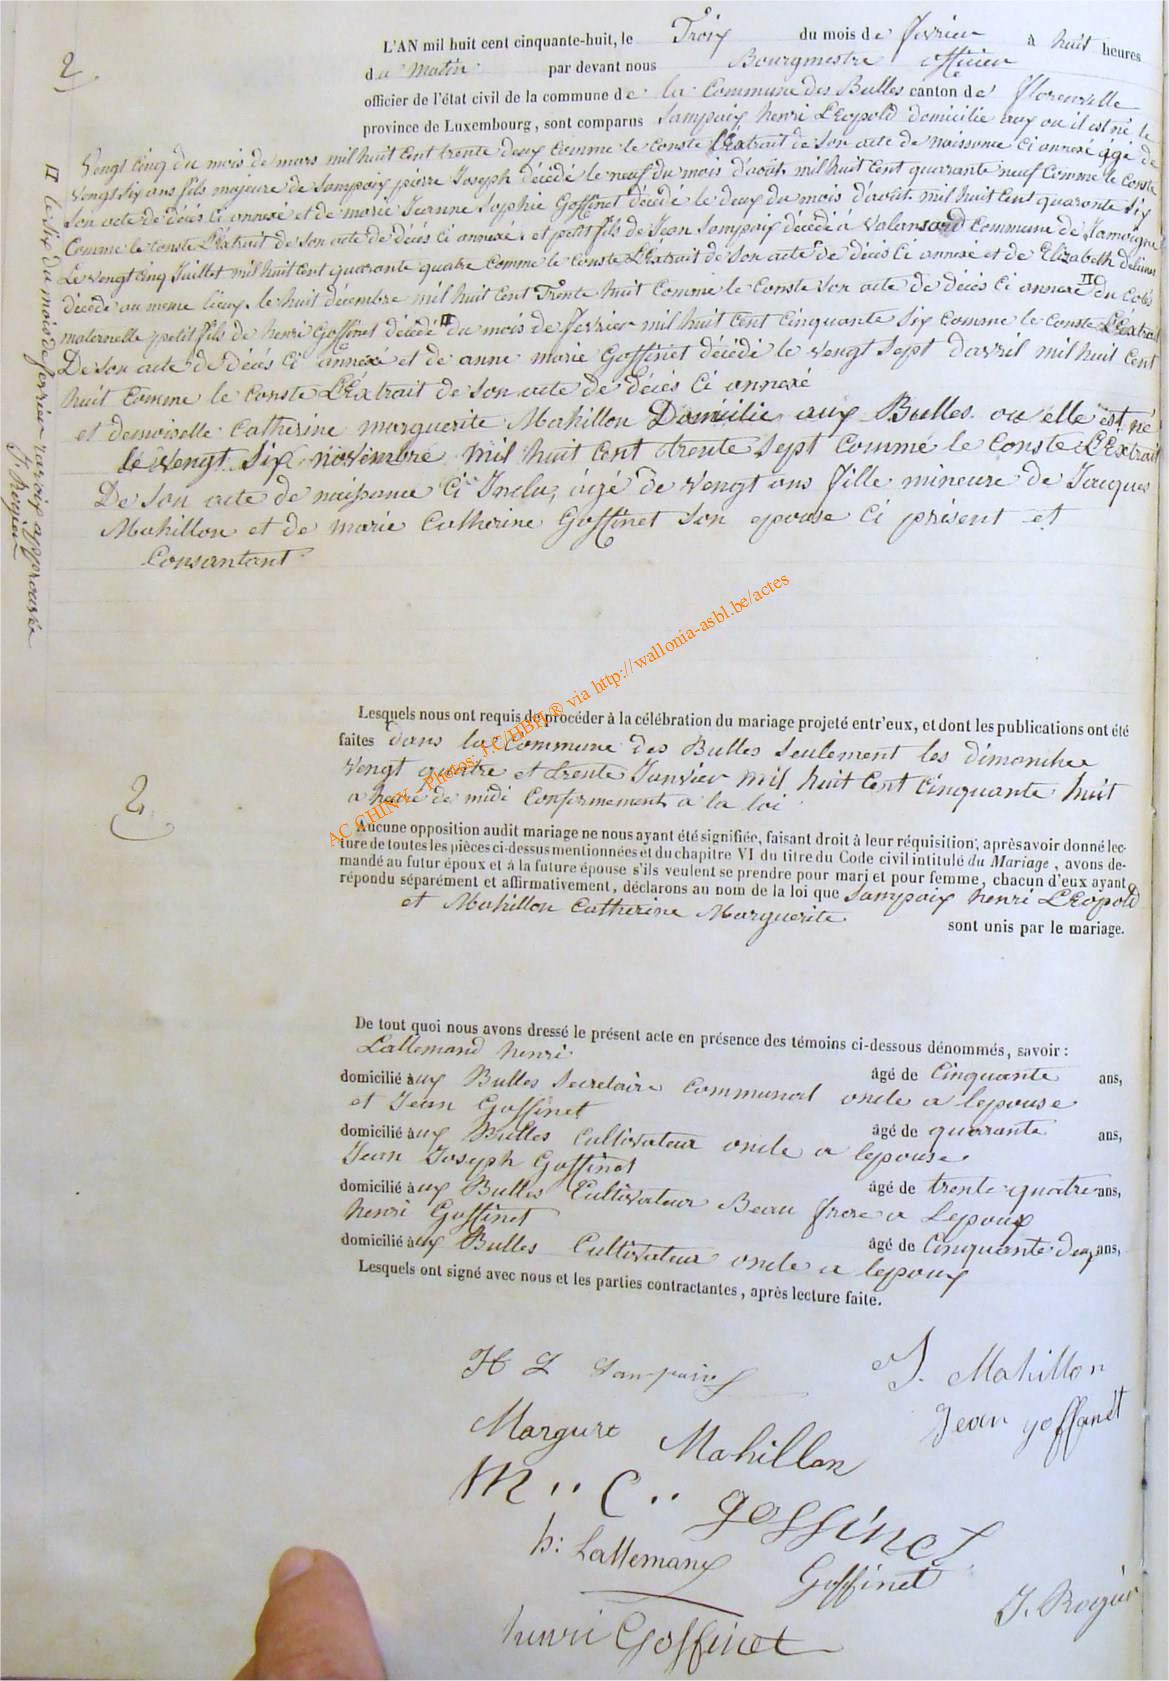 2
L'AN mil huit cent cinquante-huit, le Trois du mois de fevrier à huit heures
du matin par devant nous Bourgmestre officier
officier de l'état civil de la commune de la Commune des Bulles canton de florenville
province de Luxembourg, sont comparus Sampaix henri LEopold domicilie aux ou il est né le
Vengt cinq du mois de mars mil huit Cent trente deux comme le conste LExtrait de Son acte de naissance Ci annexé agé de
Vengt six ans fils majeure de Sampaix pierre Joseph décédé le neuf du mois d'août mil huit Cent quarante neuf Comme le Conste
Son acte de décés Ci annexé et de marie Jeanne Sophie Goffinet décédé le deux du mois d'août mil huit Cent quarante Six
Comme le conste LExtrait de Son acte de décés Ci annexé. et petit fils de Jean Sampaix décédé à Valansard Commune de Jamoigne
Le vengt cinq Juillet mil huit Cent quarante quatre comme le Conste LExtrait de Son acte de décés Ci annexé et de Elizabeth
décédé au meme lieux le huit décembre mil huit Cent Trente huit Comme le Conste Son acte de décés Ci annexé du coté
maternelle petit fils de henri Goffinet décédé II du mois de fevrier mil huit Cent Cinquante Six comme le conste LExtrait
De Son acte de décés Ci annexé et de anne marie Goffinet décédé le vengt Sept davril mil huit Cent
huit comme le conste LExtrait de Son acte de décés Ci annexé
et demoiselle Catherine marguerite Mahillon Domicilie aux Bulles ou elle est né
le vengt Six novembre mil huit Cent trente Sept Comme le Conste LExtrait
De Son acte de naissance Ci Inclu, agé de vengt ans fille mineure de Jacques
Mahillon et de marie Catherine Goffinet Son epouse Ci présent et
Consantant
II le Six du mois de fevrier approuvée
J. Rogier
Lesquels nous ont requis de procéder à la célébration du mariage projeté entr'eux, et dont les publications ont été
faites dans la Commune des Bulles Seulement les dimanche
vengt quatre et trente Janvier mil huit Cent Cinquante huit
a heure de midi Conformement a la loi
2
Aucune opposition audit mariage ne nous ayant été signifiée, faisant droit à leur réquisition, après avoir donné lec-
ture de toutes les pièces ci-dessus mentionnées et du chapitre VI du titre du Code civil intitulé du Mariage, avons de-
mandé au futur époux et à la future épouse s'ils veulent se prendre pour mari et pour femme, chacun d'eux ayant
répondu séparément et affirmativement, déclarons au nom de la loi que Sampaix henri LEopold
et Mahillon Catherine Marguerite
sont unis par le mariage.
De tout quoi nous avons dressé le présent acte en présence des témoins ci-dessous dénommés, savoir :
Lallemand henri âgé de Cinquante ans,
domicilié aux Bulles Secretaire Communal oncle a lepouse
et Jean Goffinet âgé de quarante ans,
domicilié aux Bulles Cultivateur oncle a lepouse
Jean Joseph Goffinet âgé de trente quatre ans,
domicilié aux Bulles Cultivateur Beau frere a Lepoux
henri Goffinet âgé de Cinquante deux ans,
domicilié aux Bulles Cultivateur oncle a lepoux
Lesquels ont signé avec nous et les parties contractantes, après lecture faite.
H L Sampaix J. Mahillon
Jean goffinet
Mahillon
M.. C.. goffinet
h: Lallemand Goffinet
J. Rogier
henri Goffinet
AC CHINY - Photos: J.C/HBH ® via http://wallonia-asbl.be/actes